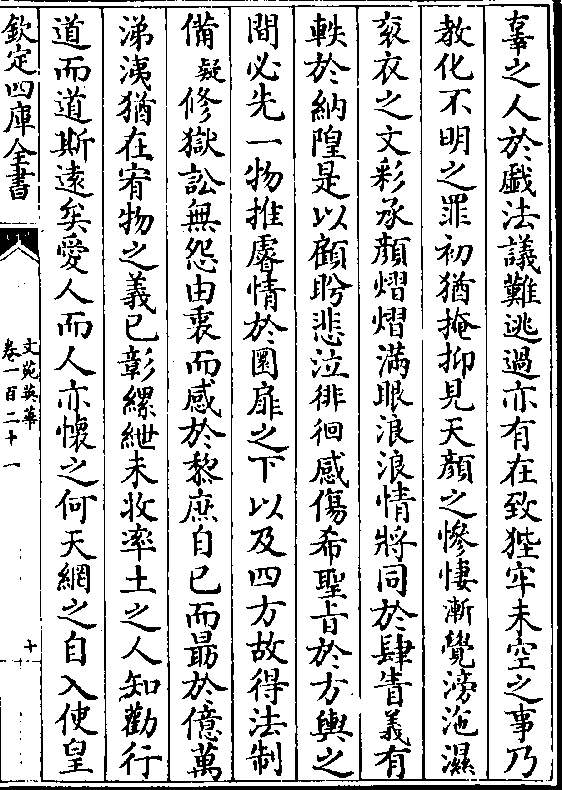 辜之人於戲法議難逃過亦有在致狴牢未空之事乃
教化不明之罪初猶掩抑見天顔之慘悽漸覺滂沲濕
衮衣之文彩承顔熠熠滿眼浪浪情將同於肆眚義有
軼於納隍是以顧盻悲泣徘徊感傷希聖旨於方輿之
間必先一物推睿情於圜扉之下以及四方故得法制
備疑修獄訟無怨由衷而感於黎庶自已而勗於億萬
涕洟猶在宥物之義已彰縲紲未收率土之人知勸行
道而道斯遠矣愛人而人亦懷之何天網之自入使皇
欽定四庫全書
文苑英華
卷一百二十一
十